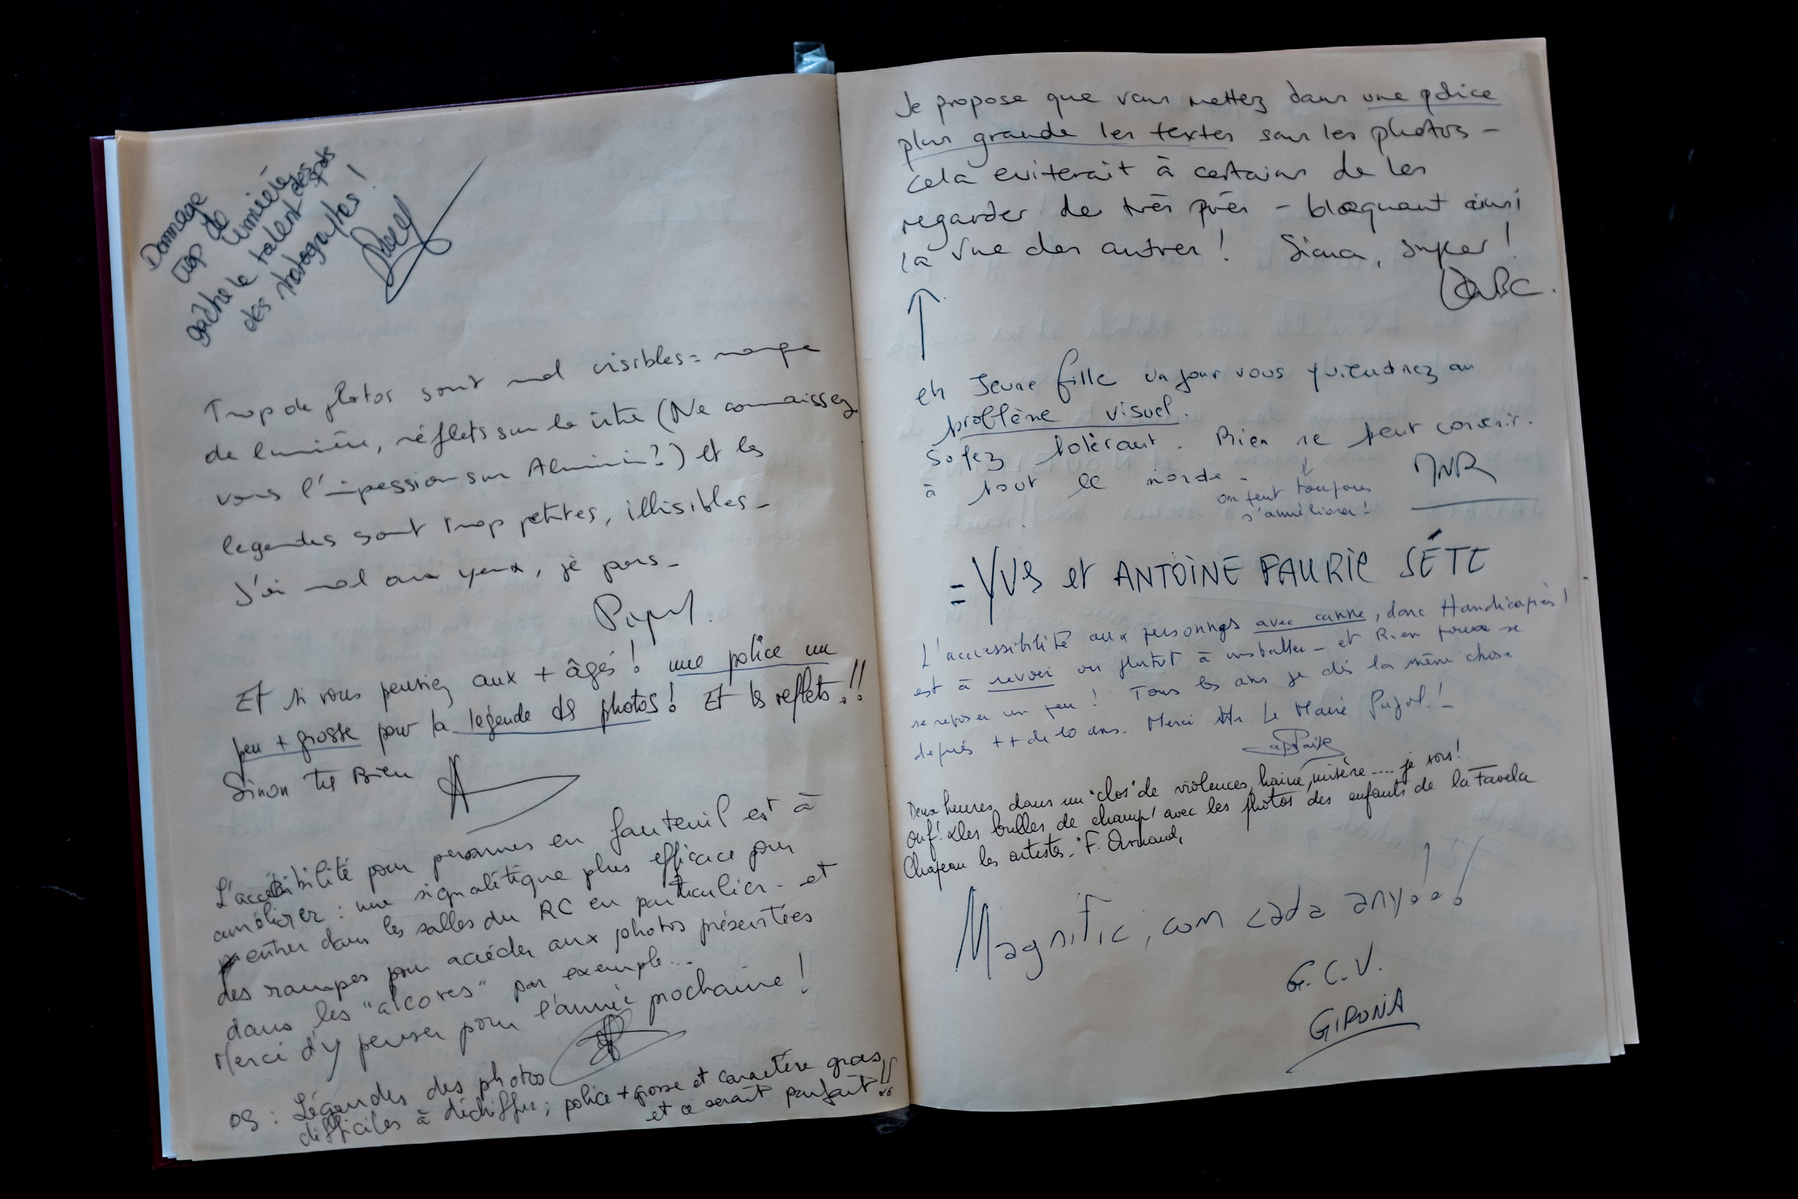 Dommage
trop de
lumière
gâche le talent des
des photographes !
Trop de photos sont mal visibles = manque
de lumière, réflets sur la vitre (Ne connaissez
vous l'impession sur Aluminium ?) et les
legendes sont trop petites, illisibles_
J'ai mal aux yeux, je pars_
Et si vous pensiez aux + âgés ! une police un
peu + grosse pour la legende des photos ! Et les reflets !!
Sinon très Bien
L'accessibilité pour personnes en fauteuil est à
améliorer : une signalétique plus efficace pour
entrer dans les salles du RC en particulier - et
des rampes pour accéder aux photos présentées
dans les "alcoves" par exemple...
Merci d'y penser pour l'année prochaine !
Légendes des photos
difficiles à déchiffrer ; police + grosse et caractère gras
et ce serait parfait !!
Je propose que vous mettez dans une police
plus grande les textes sous les photos -
Cela eviterait à certains de les
regarder de très près - bloquant ainsi
la vue des autres ! Sinon, super !
eh Jeune fille un jour vous
problène visuel.
Soyez tolérant. Rien ne peut convenir.
à tout le monde -
on peut toujours
s'améliorer !
JNR
= YVES et ANTOINE FAURIE SÉTE
L'accessibilité aux personnes avec canne, donc Handicapées !
est à revoir ou plutôt à installer - et Rien pour se
se reposer un peu ! Tous les ans je dis la même chose
depuis ++ de 10 ans. Merci Mr. Le Maire Pujol ! -
Deux heures dans un "clos" de violences, haine, misère.... je sors !
Ouf ! Des bulles de champ' avec les photos des enfants de la Favela
Chapeau les artistes. F. Arnaud,
Magnific, com cada any !
G.C.V.
GIRONA